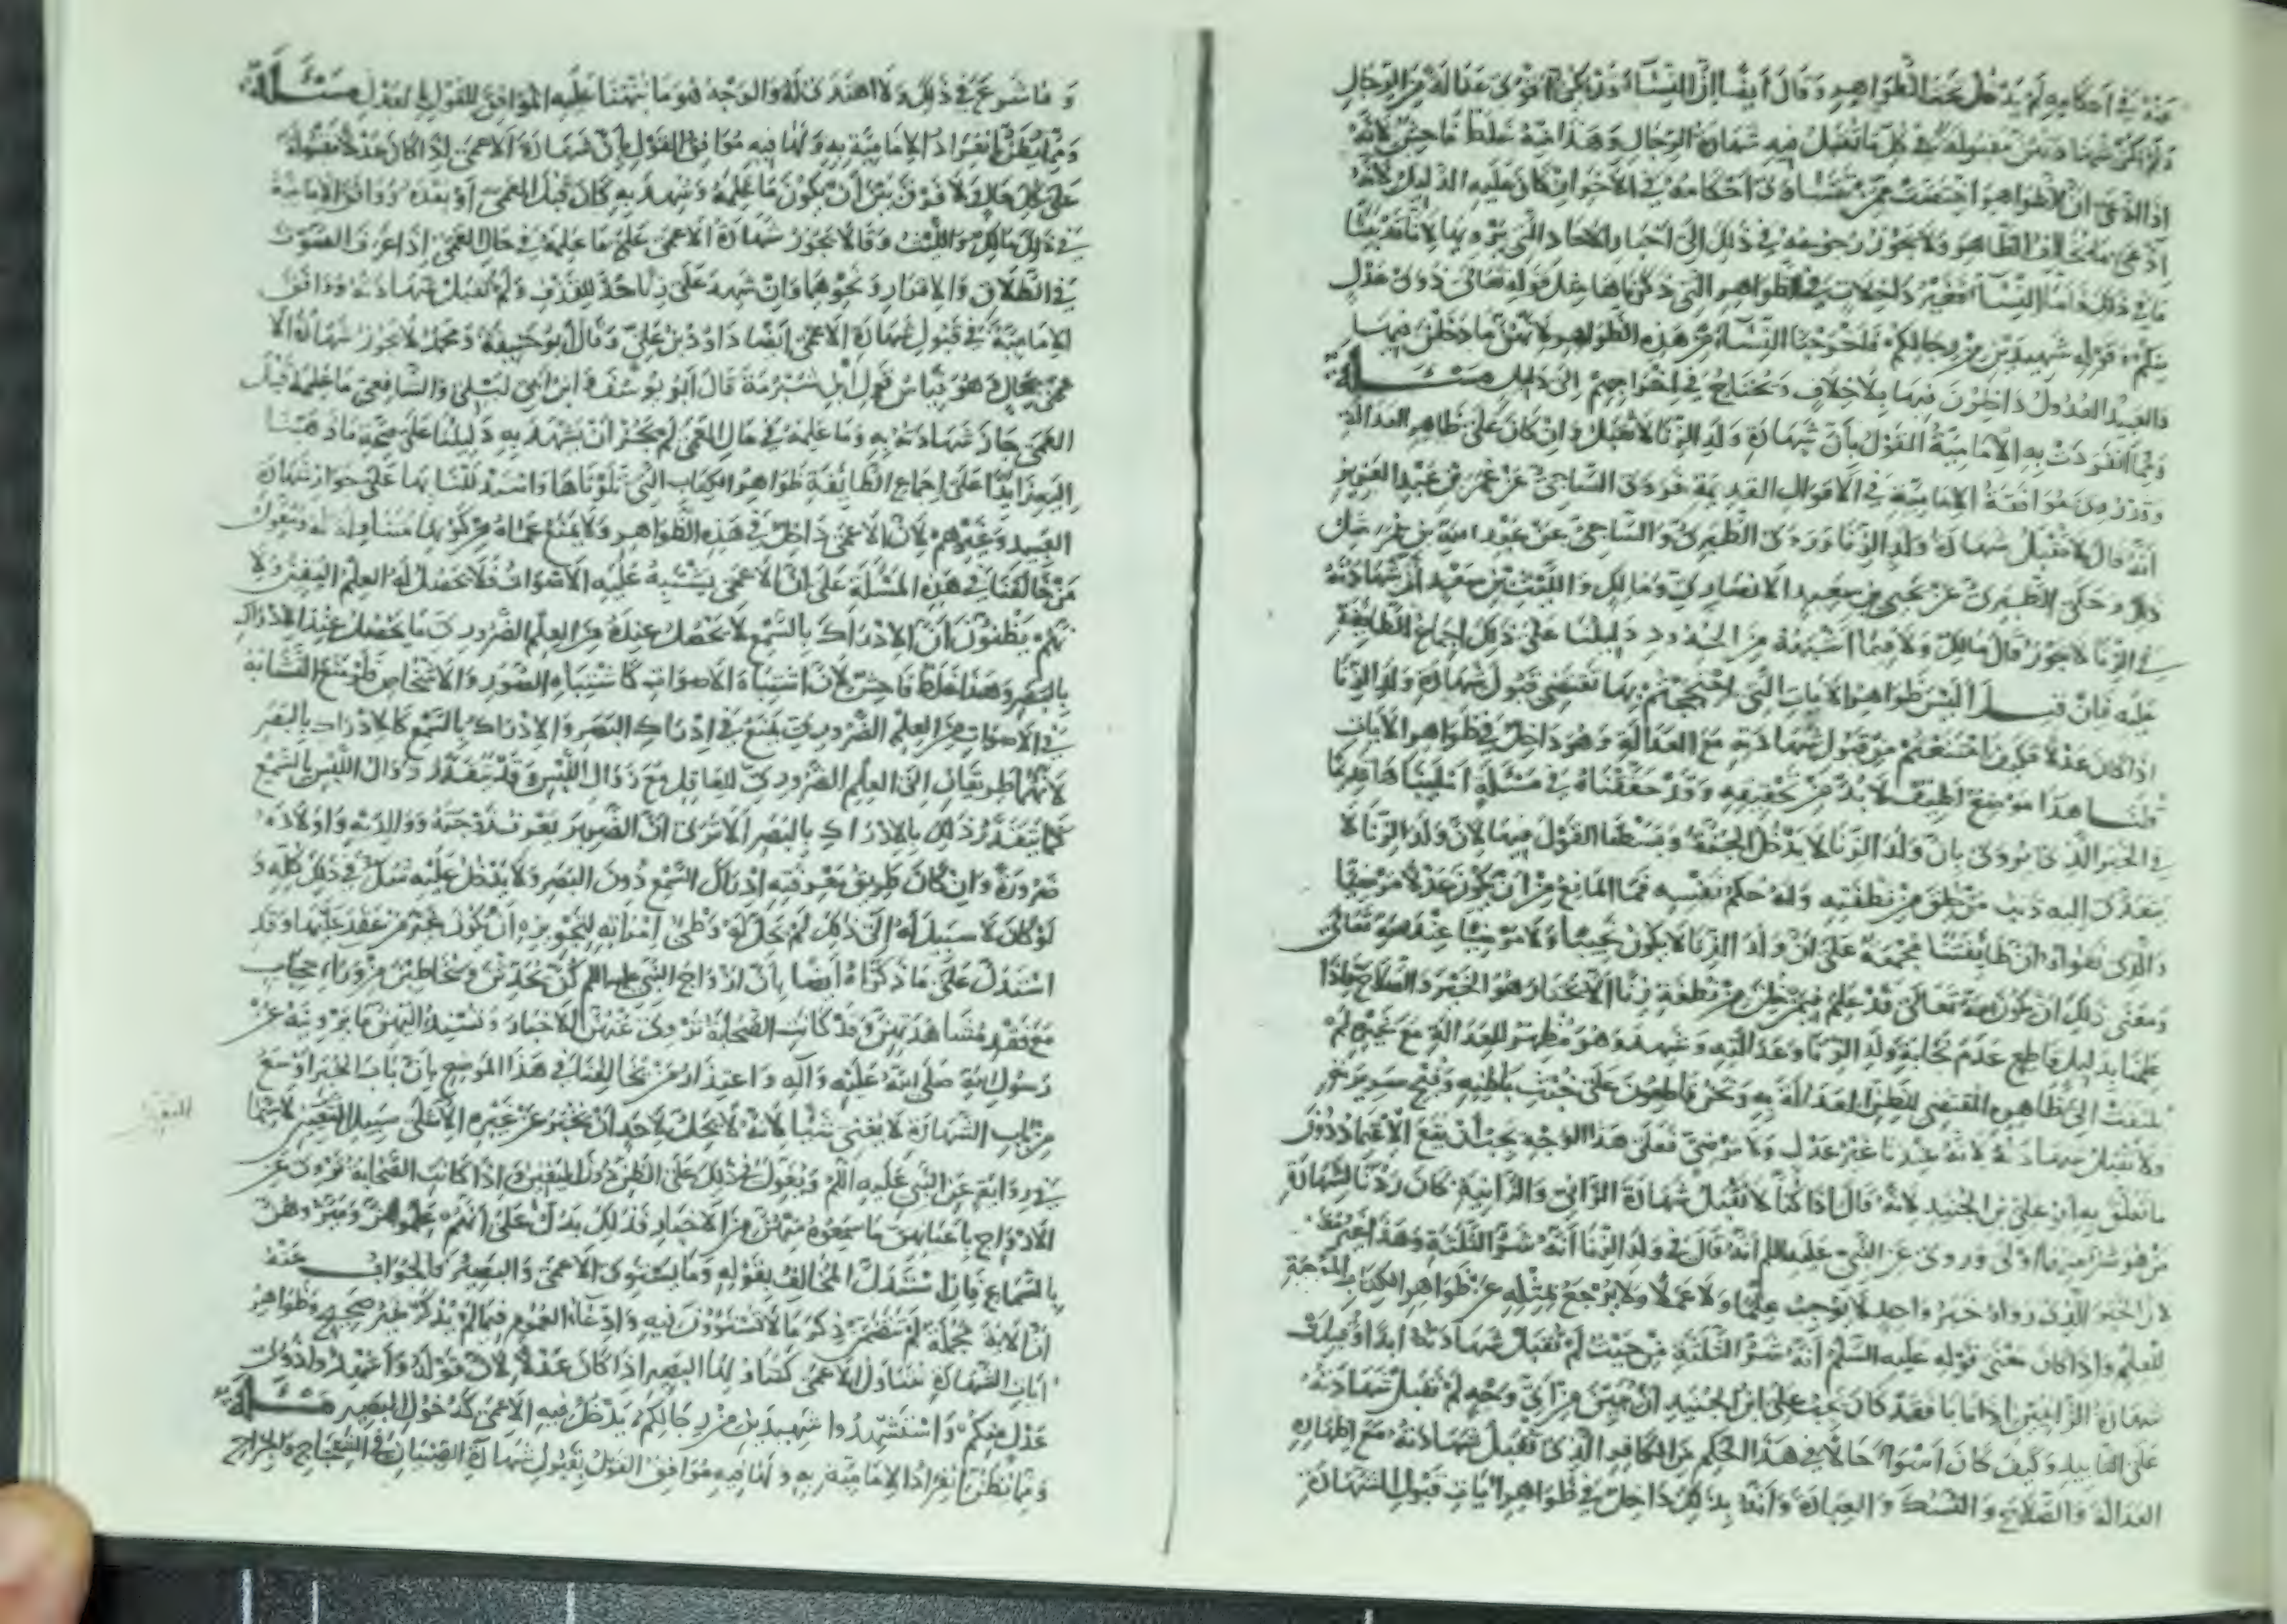 عنه في أحكامه لم يدخل تحت الظواهر وقال أيضا إن النساء قد يكن أقوى عدالة من الرجال
ولم تكن شهادتهن مقبولة في كل ما تقبل فيه شهادة الرجال وهذا منه غلط فاحش لأنه
إذا ادعى أن الظواهر اختصت بمن تتساوى أحكامه في الأحوال كان عليه الدليل لأنه
ادعى ما يخالف الظاهر ولا يجوز رجوعه في ذلك إلى أخبار الآحاد التي يرويها لأنا قد بينا
ما في ذلك فأما النساء فغير داخلات في الظواهر التي ذكرناها مثل قوله تعالى ذوى عدل
منكم وقوله شهيدين من رجالكم فما أخرجنا النساء من هذه الظواهر لأنهن ما دخلن فيها
والعبيد العدول داخلون فيها بلا خلاف ويحتاج في إخراجهم إلى دليل مسئلة
ومما انفردت به الإمامية القول بأن شهادة ولد الزنا لا تقبل وإن كان على ظاهر العدالة
وقد روي موافقة الإمامية في الأقوال القديمة فروى الساجي عن عمر بن عبد العزيز
أنه قال لا تقبل شهادة ولد الزنا وروى الطبري والساجي عن عبد الملك بن
ذلك وحكى الطبري عن يحيى بن سعيد الأنصاري ومالك والليث بن سعيد أن شهادته
في الزنا لا تجوز قال مالك ولا فيما أشبهه من الحدود دليلنا على ذلك إجماع الطائفة
عليه فإن قيل أليس ظواهر الآيات التي احتججتم بها تقتضي قبول شهادة ولد الزنا
إذا كان عدلا فكيف امتنعتم من قبول شهادته مع العدالة وهو داخل في ظواهر الآيات
قلنا هذا موضع لطيف لا بد من تحقيقه وقد حققناه في مسئلة أمليناها قديما
في الخبر الذي يروى بأن ولد الزنا لا يدخل الجنة وبسطنا القول فيها لأن ولد الزنا لا
يتعدى إليه ذنب من خلق من نطفته وله حكم نفسه فما المانع من أن يكون عدلا مرضيا
والذي نقوله أن طائفتنا مجمعة على أن ولد الزنا لا يكون نجيبا ولا مرضيا عند الله تعالى
ومعنى ذلك أن يكون الله تعالى قد علم فيمن خلق من نطفة زنا ألا يختار هو الخير والصلاح فإذا
علمنا بدليل قاطع عدم نجابة ولد الزنا وعدالته وشهد وهو مظهر للعدالة مع غيره لم
يلتفت إلى ظاهره المقتضي للظن العدالة به ونحن قاطعون على خبث باطنه وقبح سريرته
ولا تقبل شهادته لأنه عندنا غير عدل ولا مرضي فعلى هذا الوجه يجب أن يقع الاعتماد دون
ما تعلق به أبو علي بن الجنيد لأنه قال إذا كنا لا نقبل شهادة الزاني والزانية كان ردنا لشهادة
من هو شر منهما أولى وروى عن النبي عليه السلام أنه قال في ولد الزنا أنه شر الثلثة وهذا غير معتمد
لأن الخبر الذي رواه خبر واحد لا يوجب علما ولا عملا ولا يرجع بمثله عن ظواهر الكتاب الموجبة
للعلم وإذا كان معنى قوله عليه السلام أنه شر الثلثة من حيث لم تقبل شهادته أبدا وقبلت
شهادة الزانيين إذا تابا فقد كان يجب على ابن الجنيد أن يبين من أي وجه لم تقبل شهادته
على التأبيد وكيف كان أسوأ حالا في هذا الحكم من الكافر الذي تقبل شهادته مع إظهاره
العدالة والصلاح والنسك والعبادة وأنه بذلك داخل في ظواهر آيات قبول الشهادة
وما شرع في ذلك ولا اهتدى له والوجه هو ما نبهنا عليه الموافق للقول بالعدل مسئلة
ومما يظن انفراد الإمامية به ولها فيه موافق القول بأن شهادة الأعمى إذا كان عدلا مقبولة
على كل حال ولا فرق بين أن يكون ما علمه وشهد به كان قبل العمى أو بعده ووافق الإمامية
في ذلك مالك والليث وقالا تجوز شهادة الأعمى على ما علمه في حال العمى إذا عرف الصوت
في الطلاق والإقرار ونحوهما وإن شهد على زنا حد للقذف ولم تقبل شهادته ووافق
الإمامية في قبول شهادة الأعمى أيضا داود بن علي وقال أبو حنيفة ومحمد لا تجوز شهادة الأ
عمى بحال وهو قياس قول ابن شبرمة قال أبو يوسف وابن أبي ليلى والشافعي ما علمه قبل
العمى جاز شهادته به وما علمه في حال العمى لم يجز أن يشهد به دليلنا على صحة ما ذهبنا
إليه زائدا على إجماع الطائفة ظواهر الكتاب التي تلوناها واستدللنا بها على جواز شهادة
العبيد وغيرهم لأن الأعمى داخل في هذه الظواهر ولا يمنع عماه من كونها متناولة له ومعول
من خالفنا في هذه المسئلة على أن الأعمى يشتبه عليه الأصوات فلا يحصل له العلم اليقين ولا
نهم يظنون أن الإدراك بالسمع لا يحصل عنده من العلم الضروري ما يحصل عند الإدراك
بالبصر وهذا غلط فاحش لأن اشتباه الأصوات كاشتباه الصور والأشخاص فلو منع التشابه
في الأصوات من العلم الضروري لمنع في إدراك البصر والإدراك بالسمع كالإدراك بالبصر
لأنهما طريقان إلى العلم الضروري للعاقل مع زوال اللبس وقد يتعذر زوال اللبس بالسمع
كما يتعذر ذلك بالإدراك بالبصر ألا ترى أن الضرير يعرف زوجته ووالديه وأولاده
ضرورة وإن كان طريق معرفته إدراك السمع دون البصر ولا يدخل عليه شك في ذلك كله و
لو كان لا سبيل له إلى ذلك لم يحل له وطئ امرأته لتجويزه أن تكون غير من عقد عليها وقد
استدل على ما ذكرناه أيضا بأن أزواج النبي عليه السلام كن يحدثن ويخاطبن من وراء حجاب
مع فقد مشاهدتهن وقد كانت الصحابة تروى عنهن الأخبار وتسند إليهن ما يروينه عن
رسول الله صلى الله عليه وآله واعتذار من يخالفنا في هذا الموضع بأن باب الخبر أوسع
من باب الشهادة لا يغني شيئا لأنه لا يحل لأحد أن يخبر عن غيره إلا على سبيل اليقين لا سيما
اليقين
في روايته عن النبي عليه السلام ويعول في ذلك على الظن دون اليقين وإذا كانت الصحابة تروى عن
الأزواج بأعيانهن ما سمعوه منهن من الأخبار فذلك يدل على أنهم علموهن وميزوهن
بالسماع فإن استدل المخالف بقوله وما يستوى الأعمى والبصير فالجواب عنه
أن الآية مجملة لم تتضمن ذكر ما لا يستوون فيه وادعاء العموم فيما لم يذكر غير صحيح وظواهر
آيات الشهادة تتناول الأعمى كتناولها البصير إذا كان عدلا لأن قوله وأشهدوا ذوى
عدل منكم واستشهدوا شهيدين من رجالكم يدخل فيه الأعمى كدخول البصير مسئلة
ومما يظن انفراد الإمامية به ولها فيه موافق القول بقبول شهادة الصبيان في الشجاج والجراح